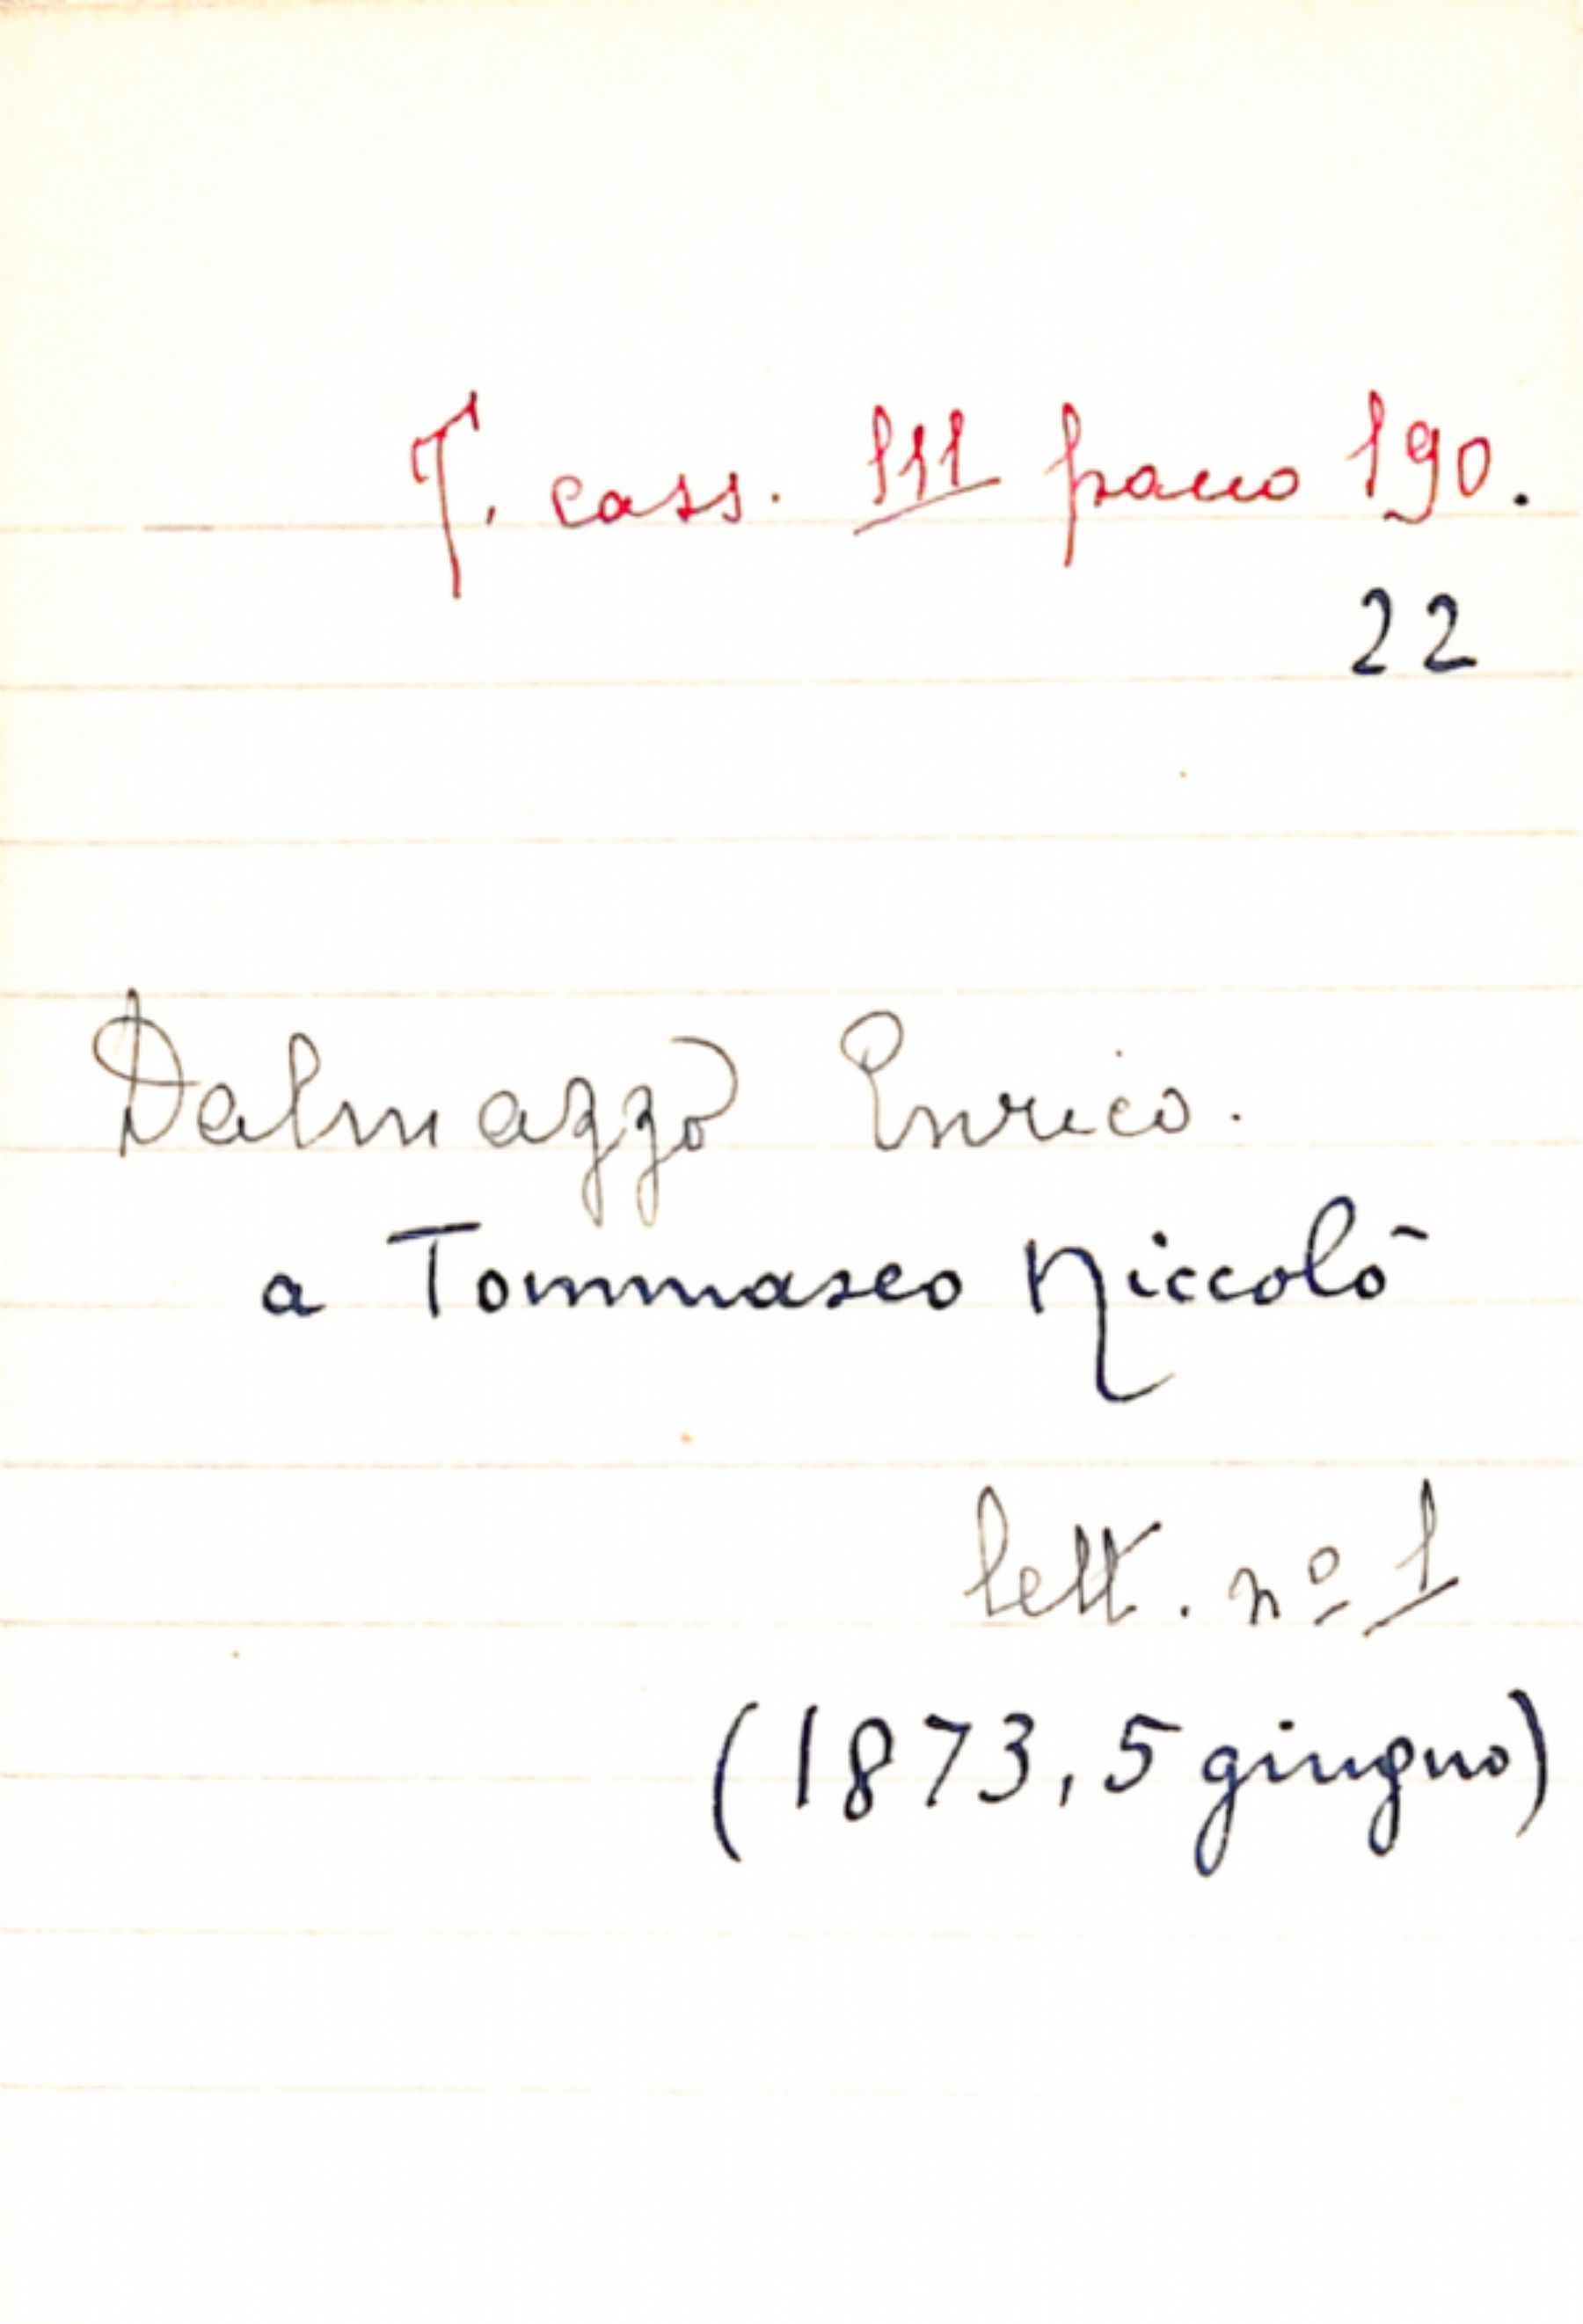 T. cass. III pacco 190.
22
Dalmazzo Enrico.
a Tommaseo Niccolò
lett. nº 1
(1873, 5 giugno)